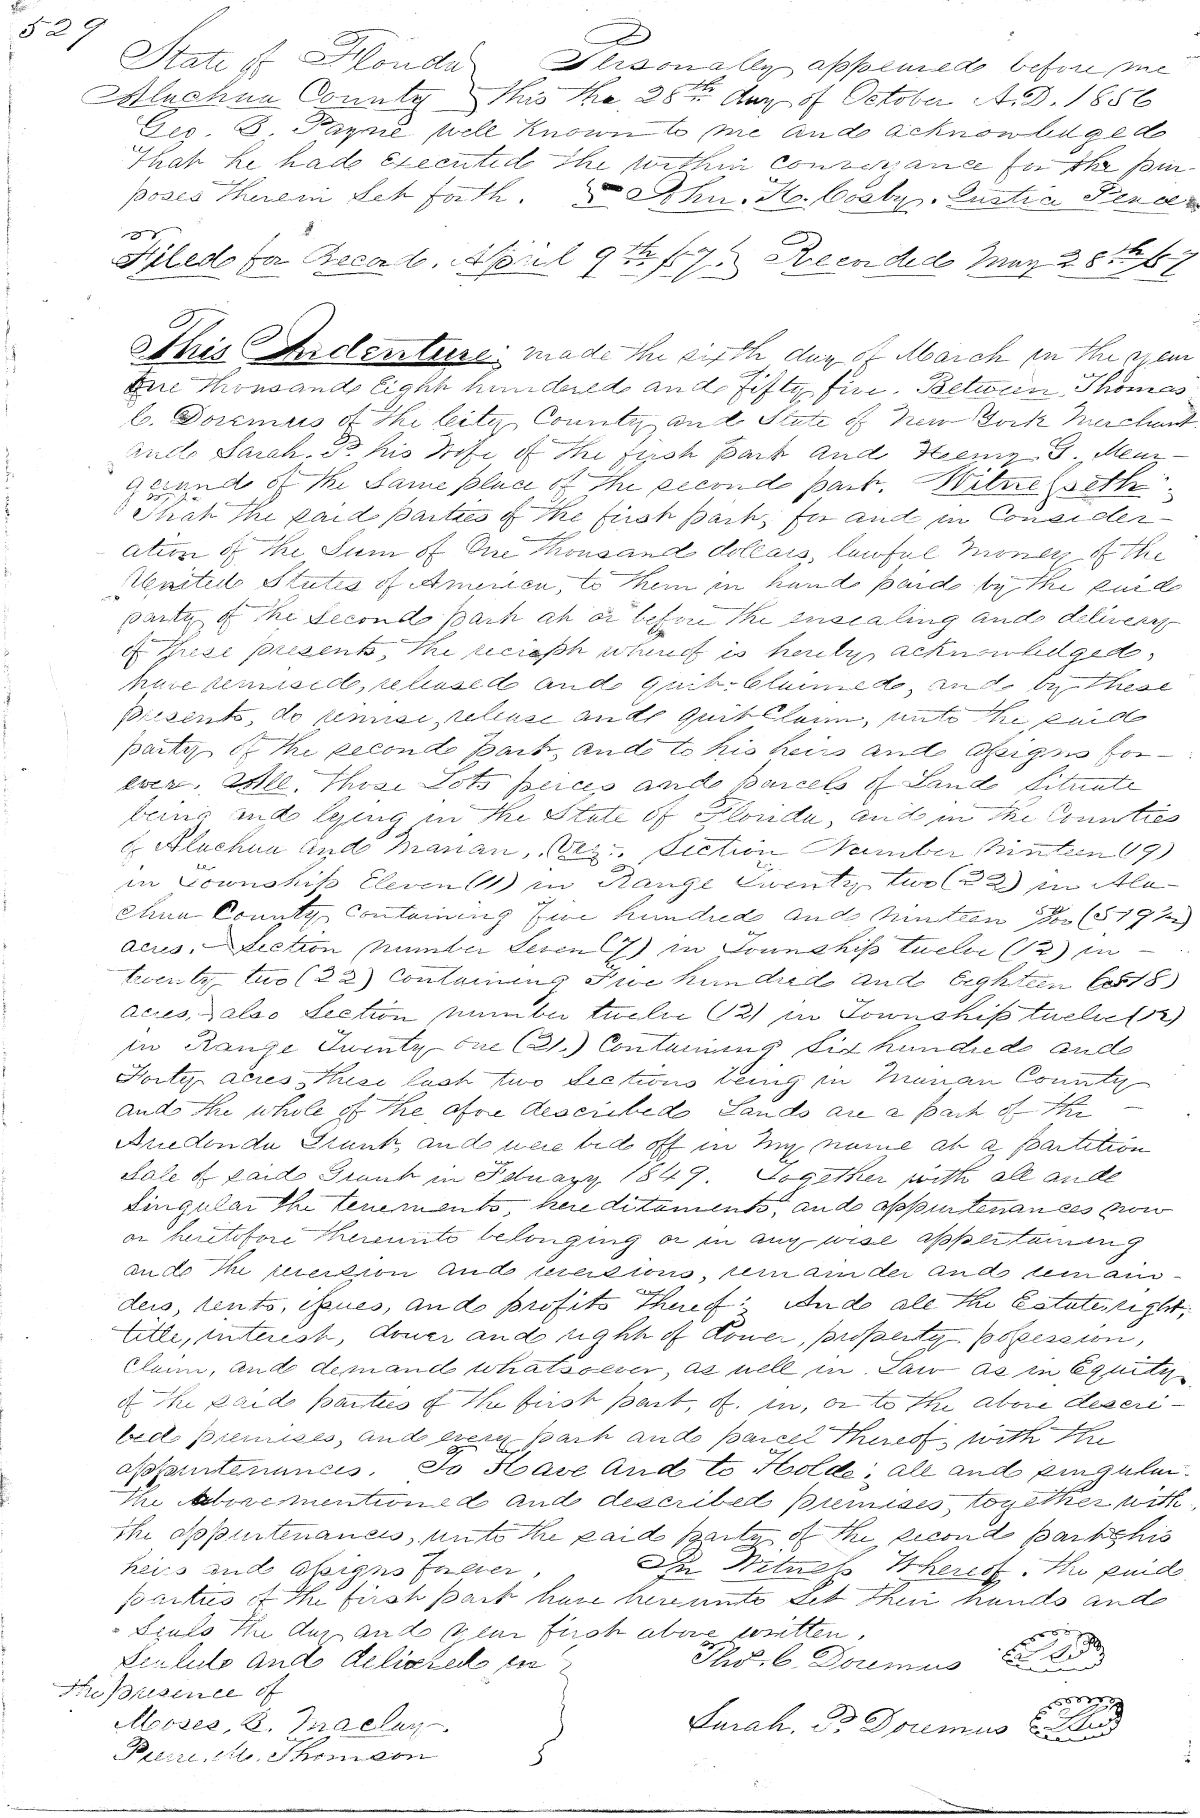 529
State of Florida } Personally appeared before me
Alachua County } this the 28th day of October A.D. 1856
Geo. B. Payne well known to me and acknowledged
that he had executed the within conveyance for the pur-
poses therein set forth. Jhn. H. Cosby. Justice Peace
Filed for Record. April 9th /57. } Recorded May 28th /57
This Indenture; made the sixth day of March in the year
One thousand Eight hundred and fifty five. Between Thomas
C. Doremus of the City County and State of New York Merchant
and Sarah. P. his Wife of the first part and Henry G. Mar-
quand of the same place of the second part. Witnesseth;
That the said parties of the first part, for and in Consider-
ation of the Sum of One thousand dollars, lawful money of the
United States of America, to them in hand paid by the said
party of the second part at or before the ensealing and delivery
of these presents, the reciept whereof is hereby acknowledged,
have remised, released and quit-Claimed, and by these
presents, do remise, release and quit Claim, unto the said
party of the second part, and to his heirs and assigns for-
ever. All. those Lots peices and parcels of Land situate
being and lying in the State of Florida, and in the Counties
of Alachua and Marian, Viz:. Section Number Ninteen (19)
in Township Eleven (11) in Range Twenty two (22) in Ala-
chua County, Containing five hundred and Ninteen
acres. Section number Seven (7) in Township twelve (12) in -
twenty two (22) Containing Five hundred and Eighteen (518)
acres, also Section number twelve (12) in Township twelve (12)
in Range Twenty one (21.) Containing Six hundred and
Forty acres, these last two Sections being in Marian County
and the whole of the afore described Lands are a part of the -
Arredonda Grant, and were bid off in my name at a partition
Sale of said Grant in Febuary 1849. Together with all and
Singular the tenements, hereditaments, and appurtenances now
or heretofore thereunto belonging or in any wise appertaining
and the reversion and reversions, remainder and remain-
ders, rents, issues, and profits thereof; And all the Estate, right,
title, interest, dower and right of Dower, property possession,
Claim, and demand whatsoever, as well in Law as in Equity
of the said parties of the first part, of. in, or to the above descri-
bed premises, and every part and parcel thereof, with the
appurtenances. To Have and to Hold; all and singular.
the above mentioned and described premises, together with
the appurtenances, unto the said party of the second part his
heirs and assigns forever. In Witness Whereof. the said
parties of the first part have hereunto set their hands and
Seals the day and year first above written.
Sealed and delivered in } Tho. C. Doremus
the presence of
Moses, B. Maclay. Sarah. P. Doremus
Pierre. M. Thomson